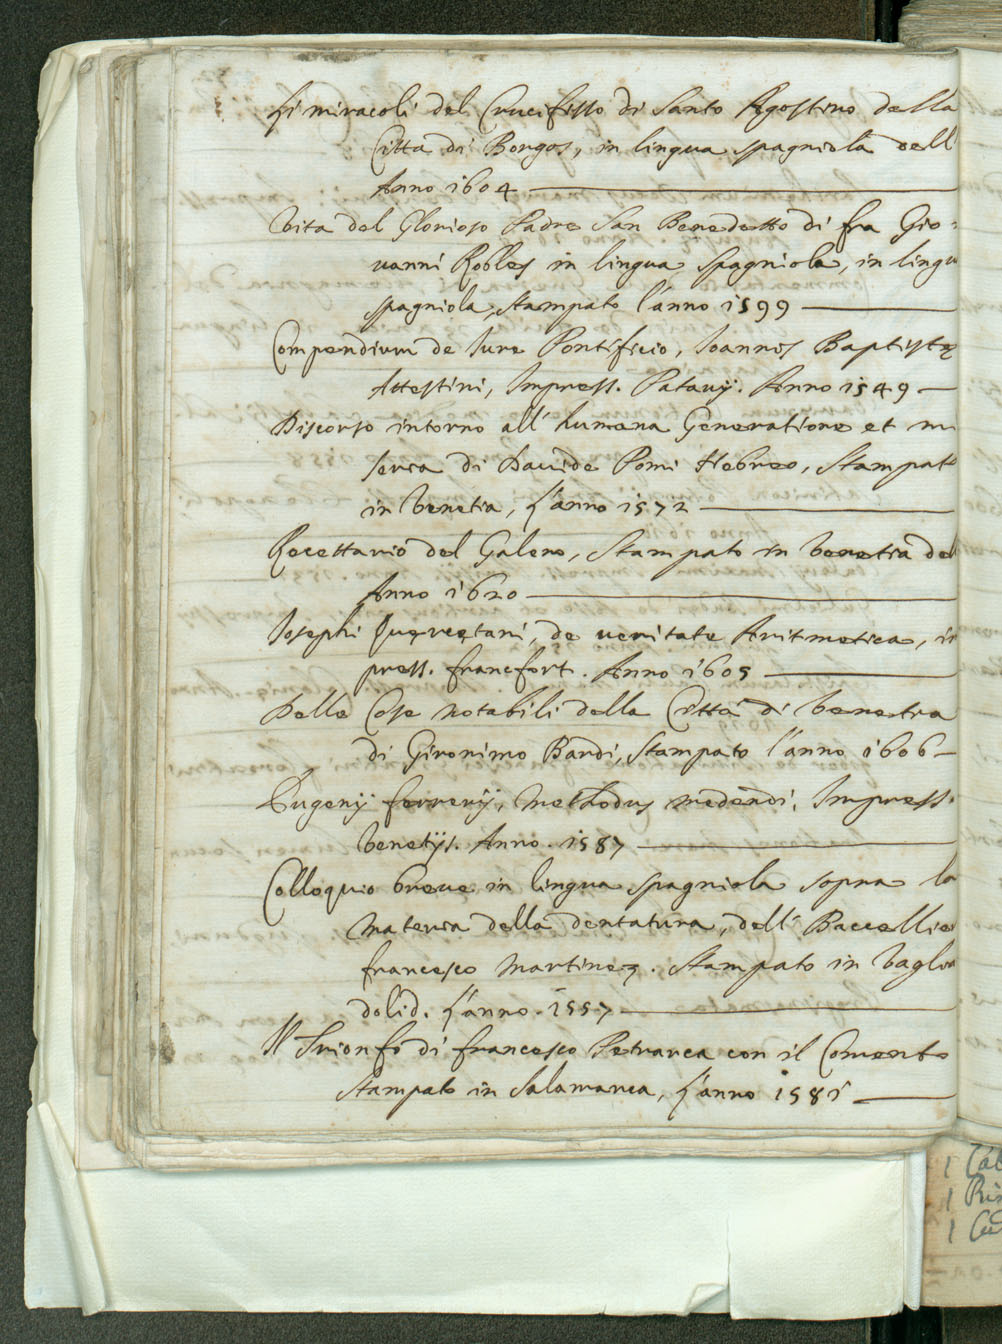 Li miracoli del Crucifisso di Santo Agostino della
Citta di Borgos, in lingua spagniola dell'
Anno 1604
Vita del Glorioso Padre San Benedetto di fra Gio=
uanni Robles in lingua spagniola, in lingu
spagniola, stampato l'anno 1599
Compendium de Iure Pontificio, Ioannis Baptistę
Attestini, Impress. Patavij. Anno 1549
Discorso intorno all' humana Generatione et mi
seria di Dauide Pomi Hebreo, Stampato
in Venetia, L'anno 1572
Recettario del Galeno, Stampato in Venetia del
Anno 1620
Iosephi Quercetani, de ueritate Aritmetica, im
press. francfort. Anno 1605
Delle Cose notabili della Città di Venetia
di Gironimo Bardi, Stampato l'anno 1606
Eugenij ferrerij, Methodus medendi, Impress.
Venetijs. Anno. 1587
Colloquio breue in lingua spagniola sopra la
materia della dentatura, dell' Baccellier
francesco Martinez. Stampato in Vaglia
dolid. L'anno. 1557
Il Trionfo di francesco Petrarca con il Comento
Stampato in Salamanca, L'anno 1581
1
1
1